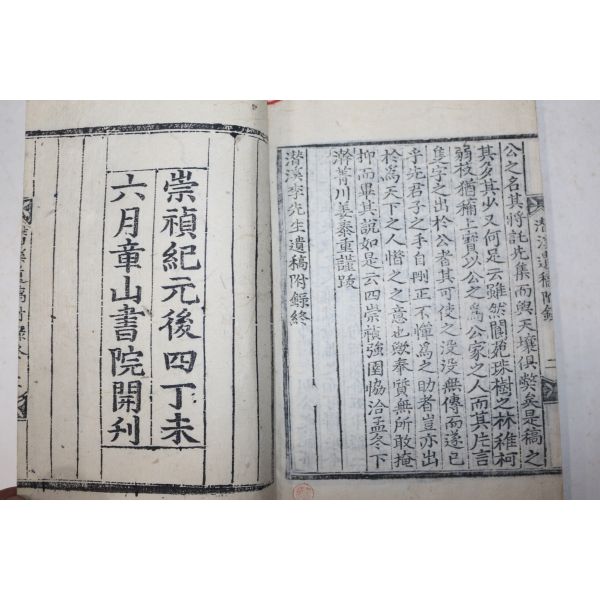 公之名其將託先集而與天壤俱弊矣是稿之
其多其少又何足云雖然閬苑珠樹之林稚柯
弱枝猶稱上寶以公之爲公家之人而其片言
隻字之出於公者其可使之沒沒無傳而遂已
乎先君子之手自刪正不憚爲之助者豈亦出
於爲天下之人惜之之意也歟泰質無所敢掩
抑而畢其說如是云四崇禎強圉恊洽孟冬下
澣菁川姜泰重謹跋
潛溪李先生遺稿附錄終
潛溪遺稿附錄
二
崇禎紀元後四丁未
六月章山書院開刋